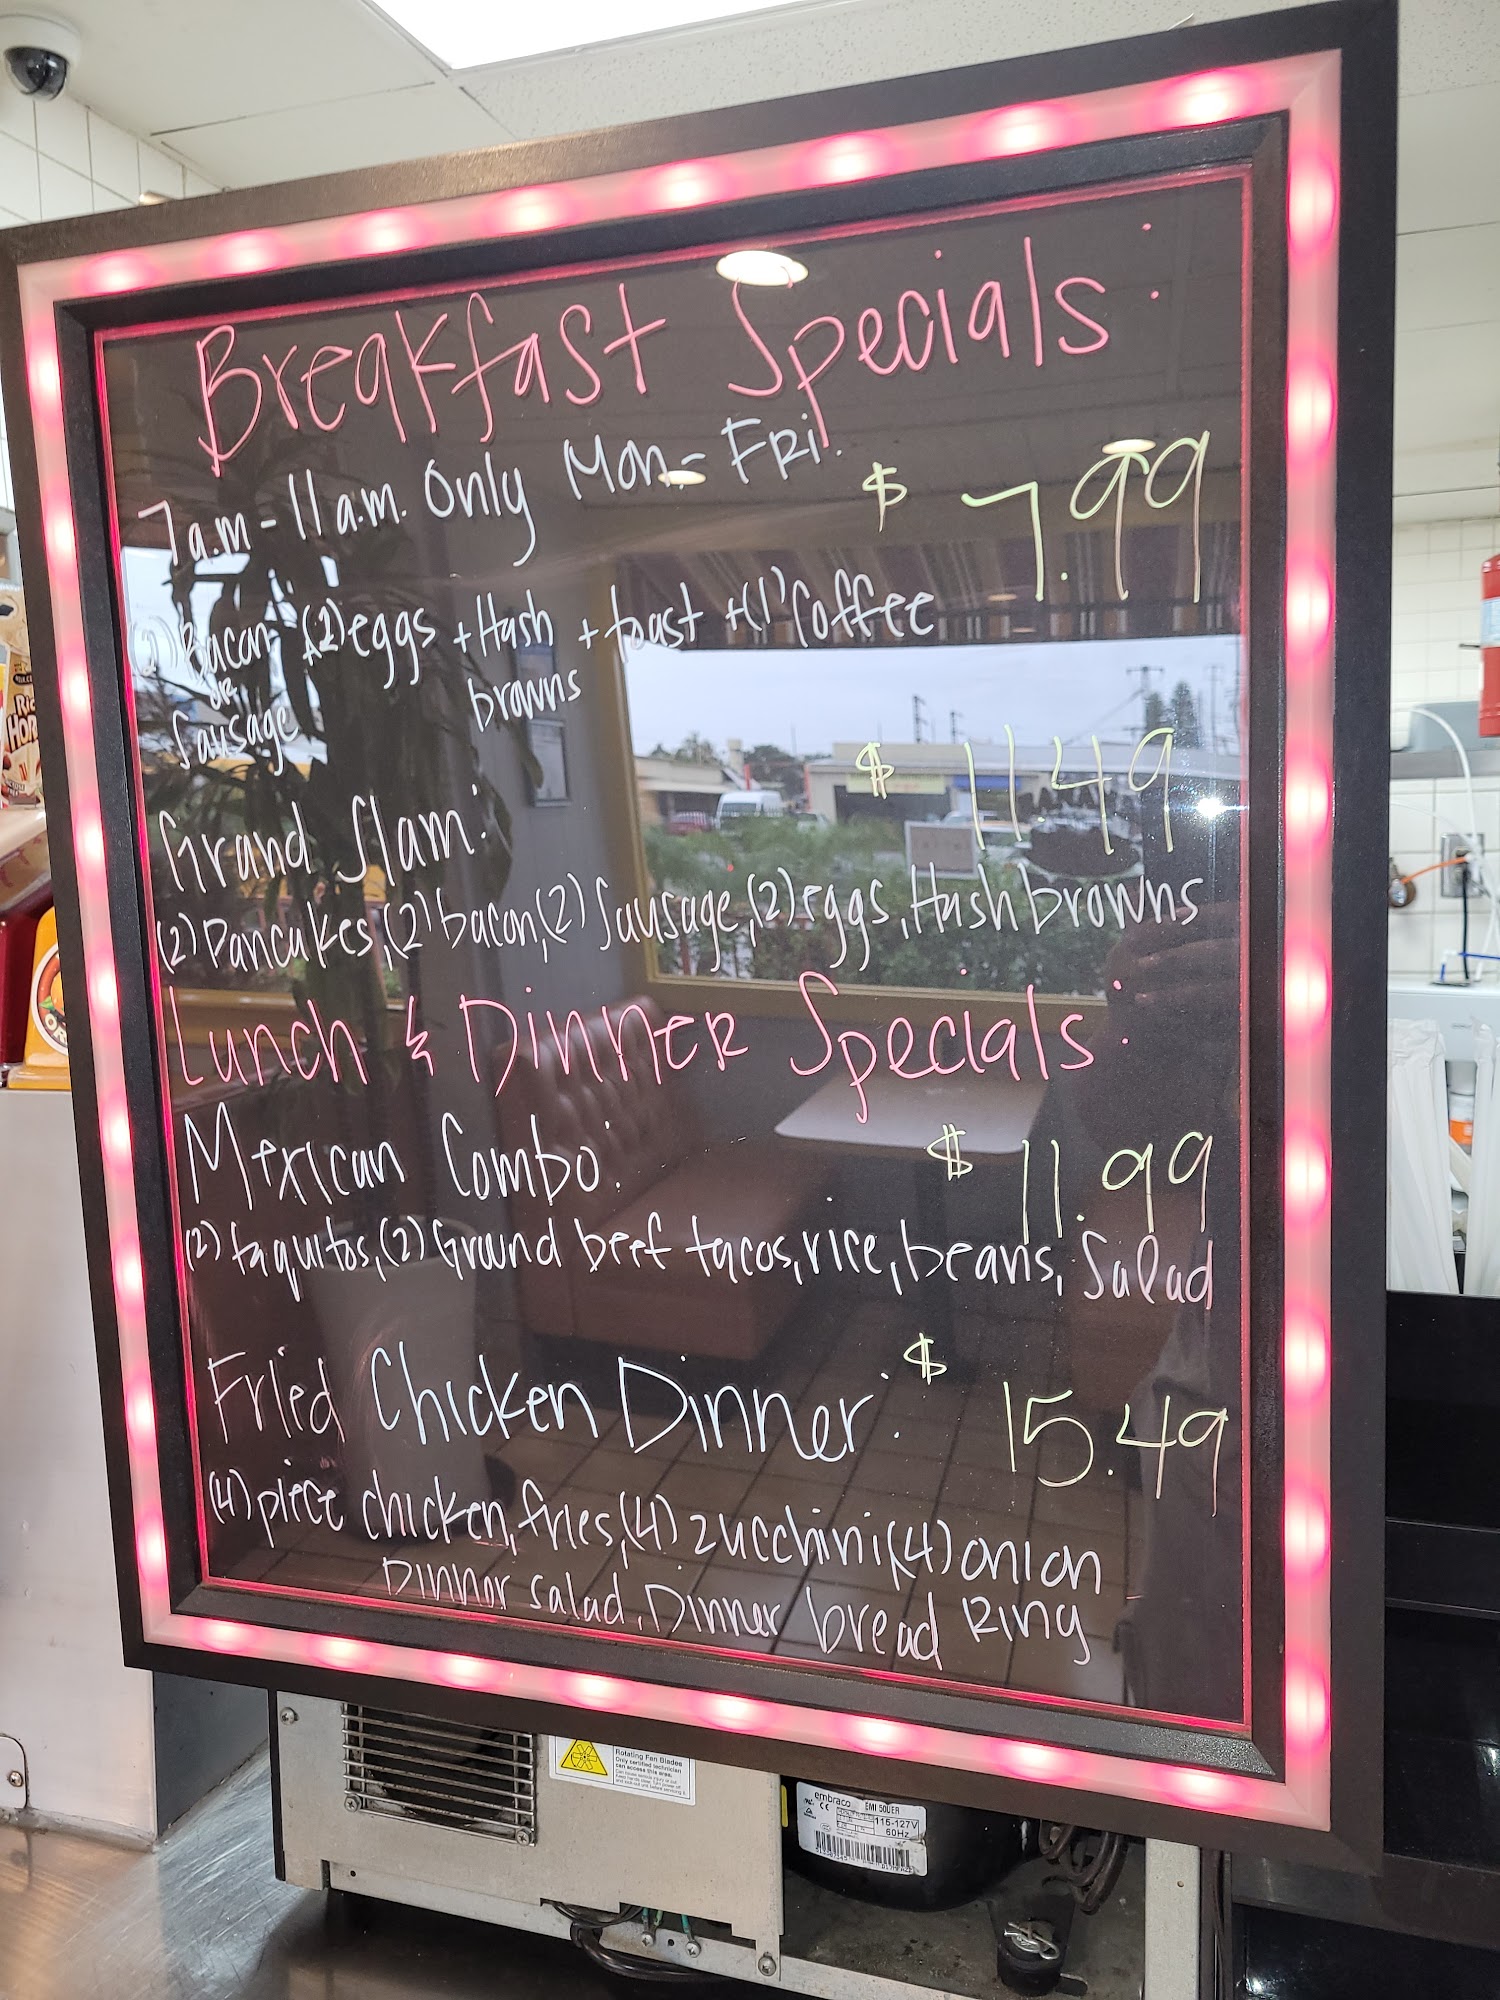 Breakfast Specials:
7a.m - 11a.m. Only Mon.- FRi.
$ 7.99
(2) Bacon (2) eggs + Hash + toast + (1) Coffee
or
Sausage
browns
Grand Slam:
$ 11.49
(2) Pancakes, (2) bacon, (2) Sausage, (2) eggs, Hash browns
Lunch & Dinner Specials:
Mexican Combo:
$ 11.99
(2) taquitos, (2) Ground beef tacos, rice, beans, Salad
Fried Chicken Dinner:
$ 15.49
(4) piece chicken, fries, (4) zucchini, (4) onion
Dinner salad, Dinner bread Ring
Rotating Fan Blades
Only certified technician
can access this area.
embraco
EMI 50UER
115-127V
60Hz